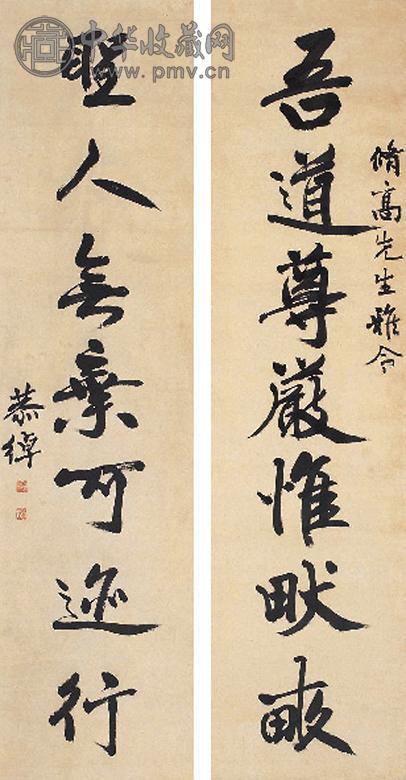 中华收藏网
www.pmv.cn
脩高先生雅令
吾道尊嚴惟畎畝
聖人無棄可迹行
恭綽